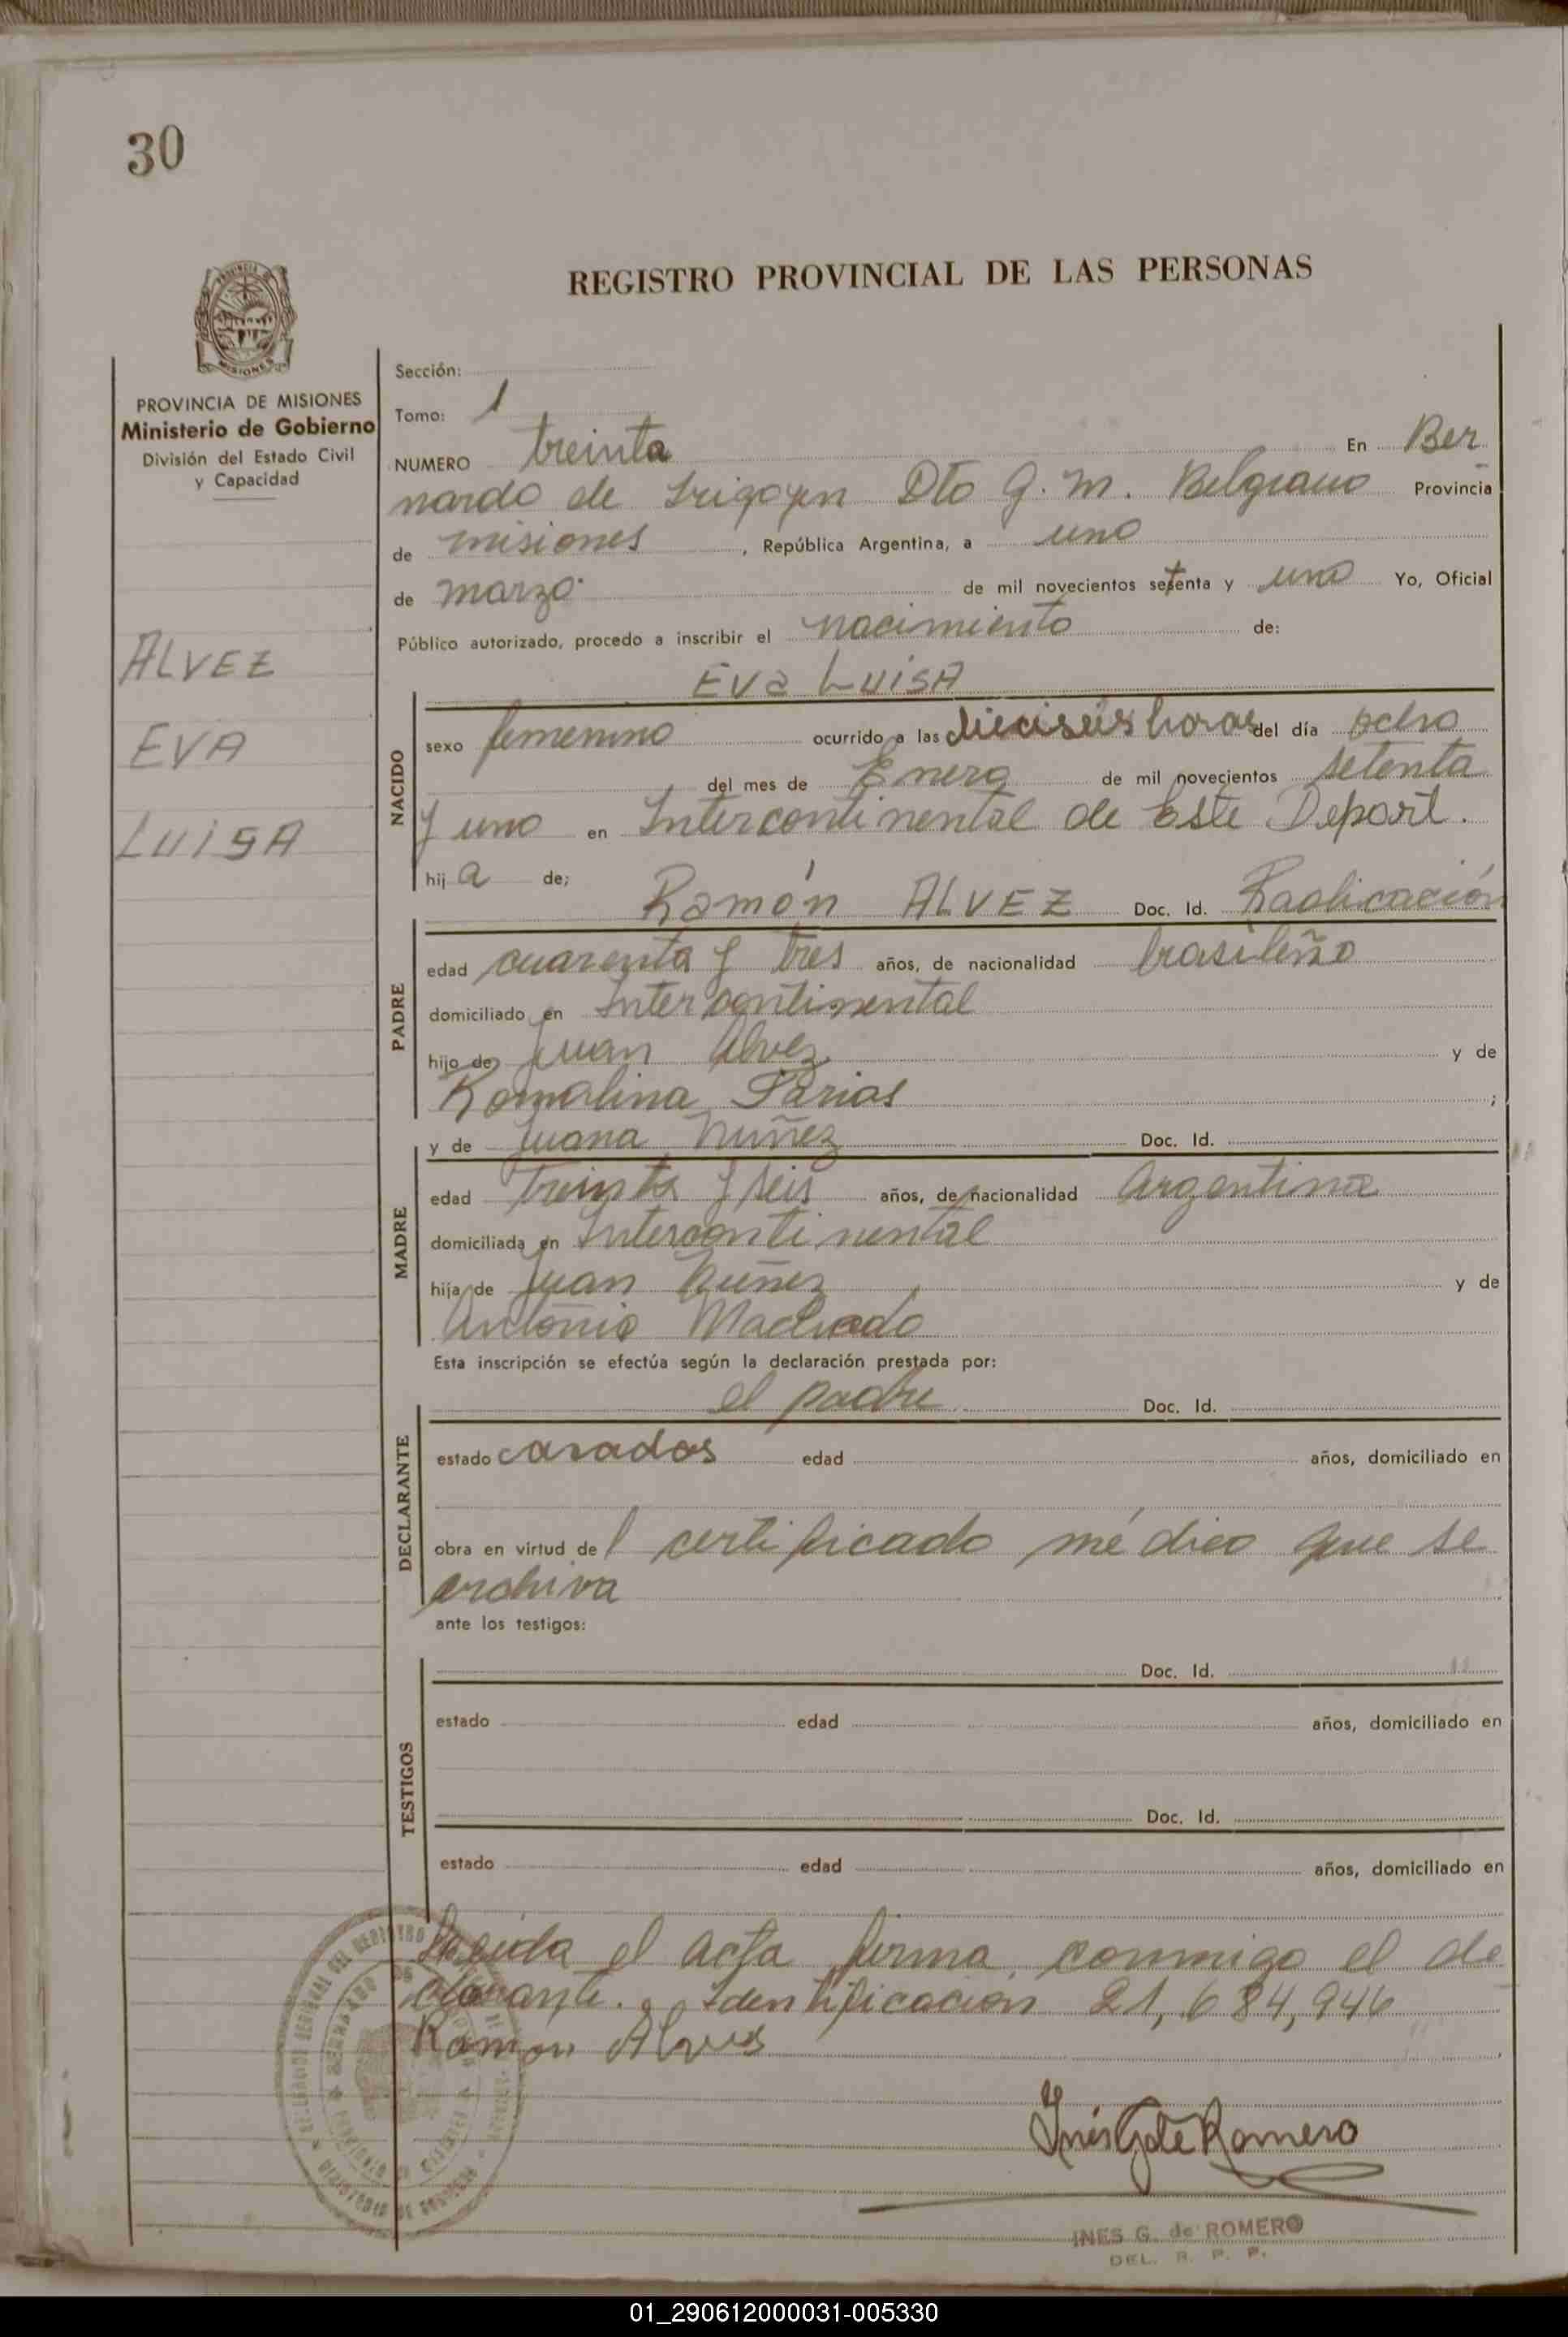 30
REGISTRO PROVINCIAL DE LAS PERSONAS
MISIONES
PROVINCIA DE MISIONES
Ministerio de Gobierno
División del Estado Civil
y Capacidad
ALVEZ
EVA
LUISA
Sección:
Tomo: 1
NUMERO treinta En Ber
nardo de Irigoyen Dto G. M. Belgrano Provincia
de misiones, República Argentina, a uno
de marzo de mil novecientos setenta y uno Yo, Oficial
Público autorizado, procedo a inscribir el nacimiento de:
Eva LuisA
NACIDO
sexo femenino ocurrido a las dieciseis horas del día ocho
del mes de Enero de mil novecientos setenta
y uno en Intercontinental de Este Depart.
hija de;
Ramón ALVEZ Doc. Id. Radicación
PADRE
edad cuarenta y tres años, de nacionalidad brasileño
domiciliado en Intercontinental
hijo de Juan Alvez y de
Romalina Farias;
y de Juana Nuñez Doc. Id.
MADRE
edad treinta y seis años, de nacionalidad Argentina
domiciliada en Intercontinental
hija de Juan Nuñez y de
Antonia Machado
Esta inscripción se efectúa según la declaración prestada por:
el padre Doc. Id.
DECLARANTE
estado casados edad años, domiciliado en
obra en virtud del certificado médico que se
archiva
ante los testigos:
Doc. Id.
TESTIGOS
estado edad años, domiciliado en
Doc. Id.
estado edad años, domiciliado en
Leida el acta firma conmigo el de
clarante. Identificacion 21,684,946
Ramon Alves
Inés G de Romero
INES G. de ROMERO
DEL. R. P. P.
01_290612000031-005330